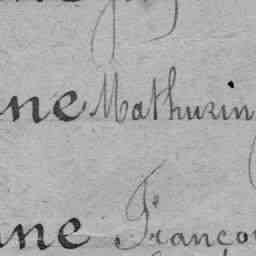 ne Mathurin
ne Franço